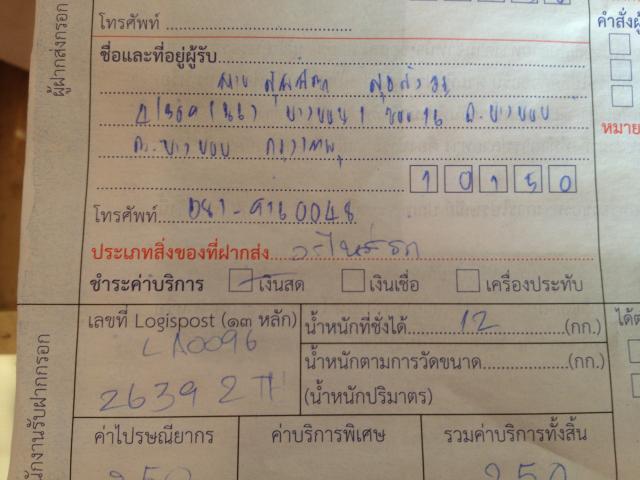 ผู้ฝากส่งกรอก
โทรศัพท์
คำสั่งผู้
ชื่อและที่อยู่ผู้รับ
นาย
บางบอน 1 ซอย 16 ต.บางบอน
อ.บางบอน กรุงเทพ
หมาย
10150
โทรศัพท์ 081-9160048
ประเภทสิ่งของที่ฝากส่ง อะไหล่รถ
ชำระค่าบริการ เงินสด เงินเชื่อ เครื่องประทับ
เลขที่ Logispost (๑๓ หลัก) น้ำหนักที่ชั่งได้ 12 (กก.)
LA0096
2639 2 TH
น้ำหนักตามการวัดขนาด (กก.)
(น้ำหนักปริมาตร)
ค่าไปรษณียากร ค่าบริการพิเศษ รวมค่าบริการทั้งสิ้น
250 250